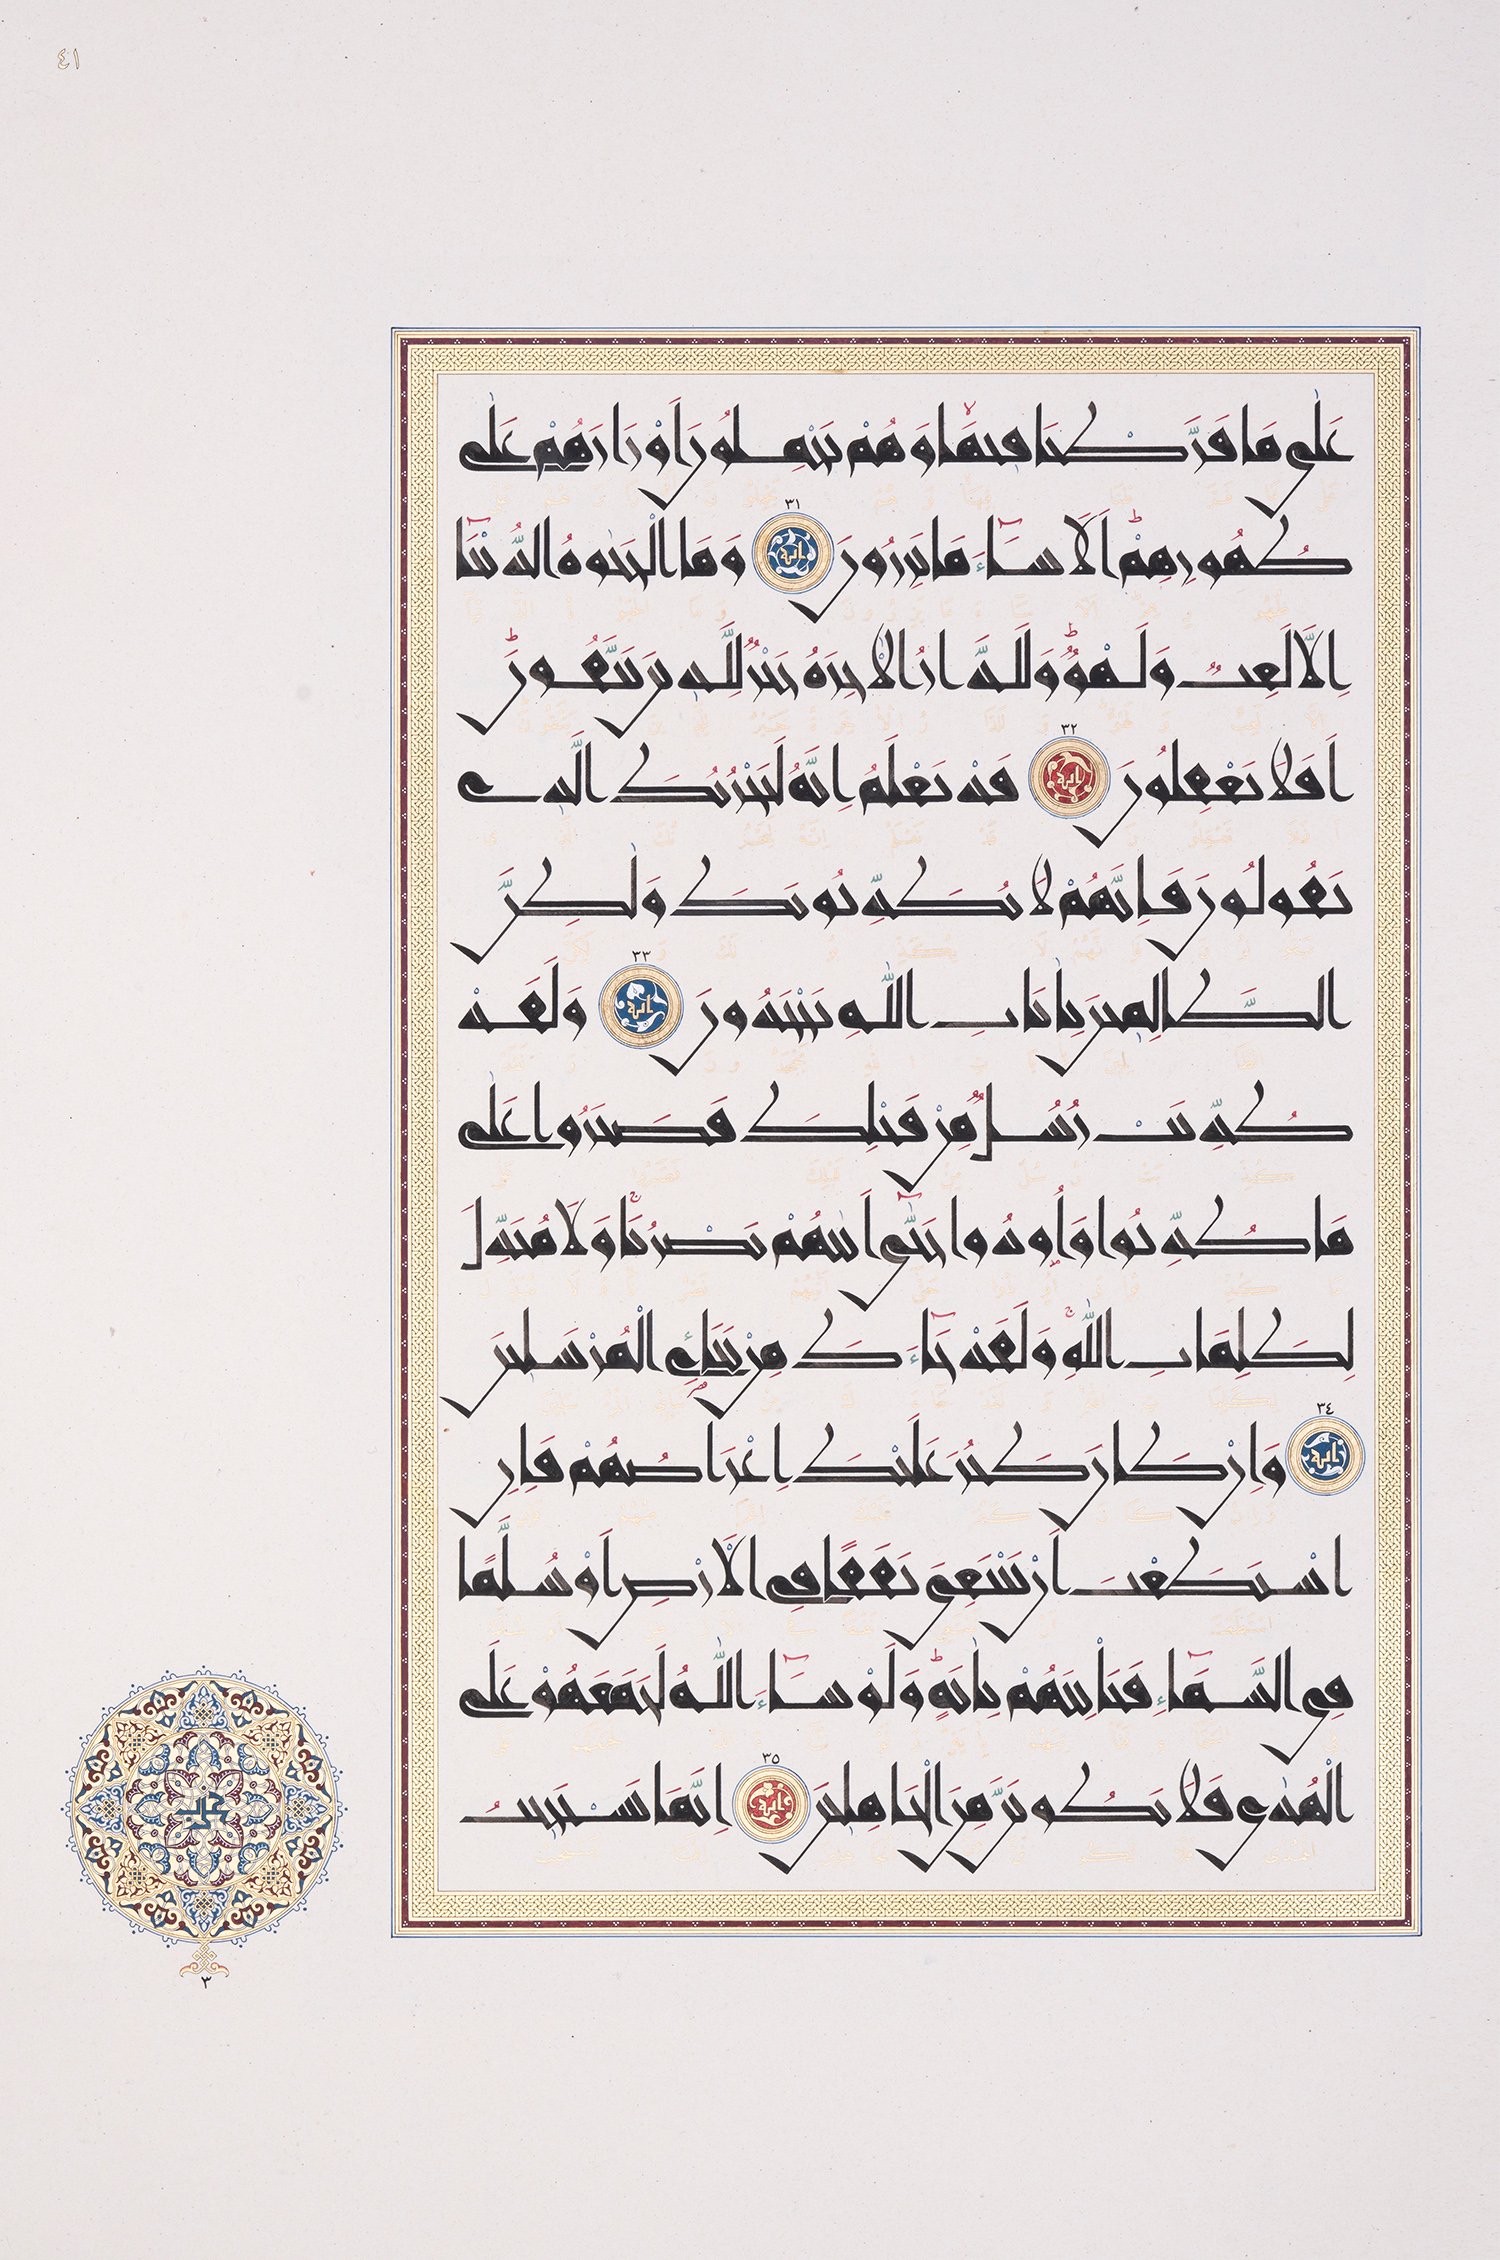 ٤١
عَلٰى مَا فَرَّطْنَا فِيهَاۙ وَهُمْ يَحْمِلُونَ اَوْزَارَهُمْ عَلٰى
ظُهُورِهِمْۜ اَلَا سَٓاءَ مَا يَزِرُونَ ٣١ وَمَا الْحَيٰوةُ الدُّنْيَٓا
اِلَّا لَعِبٌ وَلَهْوٌۜ وَلَلدَّارُ الْاٰخِرَةُ خَيْرٌ لِلَّذِينَ يَتَّقُونَۜ
اَفَلَا تَعْقِلُونَ ٣٢ قَدْ نَعْلَمُ اِنَّهُ لَيَحْزُنُكَ الَّذِي
يَقُولُونَ فَاِنَّهُمْ لَا يُكَذِّبُونَكَ وَلٰكِنَّ
الظَّالِمِينَ بِاٰيَاتِ اللّٰهِ يَجْحَدُونَ ٣٣ وَلَقَدْ
كُذِّبَتْ رُسُلٌ مِنْ قَبْلِكَ فَصَبَرُوا عَلٰى
مَا كُذِّبُوا وَاُوذُوا حَتّٰٓى اَتٰيهُمْ نَصْرُنَاۚ وَلَا مُبَدِّلَ
لِكَلِمَاتِ اللّٰهِۚ وَلَقَدْ جَٓاءَكَ مِنْ نَبَاِئِ الْمُرْسَلِينَ
٣٤ وَاِنْ كَانَ كَبُرَ عَلَيْكَ اِعْرَاضُهُمْ فَاِنِ
اسْتَطَعْتَ اَنْ تَبْتَغِيَ نَفَقًا فِي الْاَرْضِ اَوْ سُلَّمًا
فِي السَّمَٓاءِ فَتَاْتِيَهُمْ بِاٰيَةٍۜ وَلَوْ شَٓاءَ اللّٰهُ لَجَمَعَهُمْ عَلَى
الْهُدٰى فَلَا تَكُونَنَّ مِنَ الْجَاهِلِينَ ٣٥ اِنَّمَا يَسْتَجِيبُ
حزب
٣